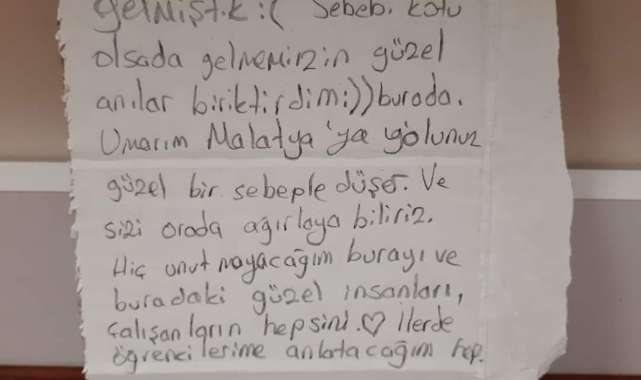 gelmiştik :( Sebebi kötü
olsada gelmemizin güzel
anılar biriktirdim:)) burada.
Umarım Malatya'ya yolunuz
güzel bir sebeple düşer. Ve
sizi orada ağırlaya biliriz.
Hiç unut mayacağım burayı ve
buradaki güzel insanları,
çalışanların hepsini.♡ İlerde
öğrenci lerime anlatacağım hep.